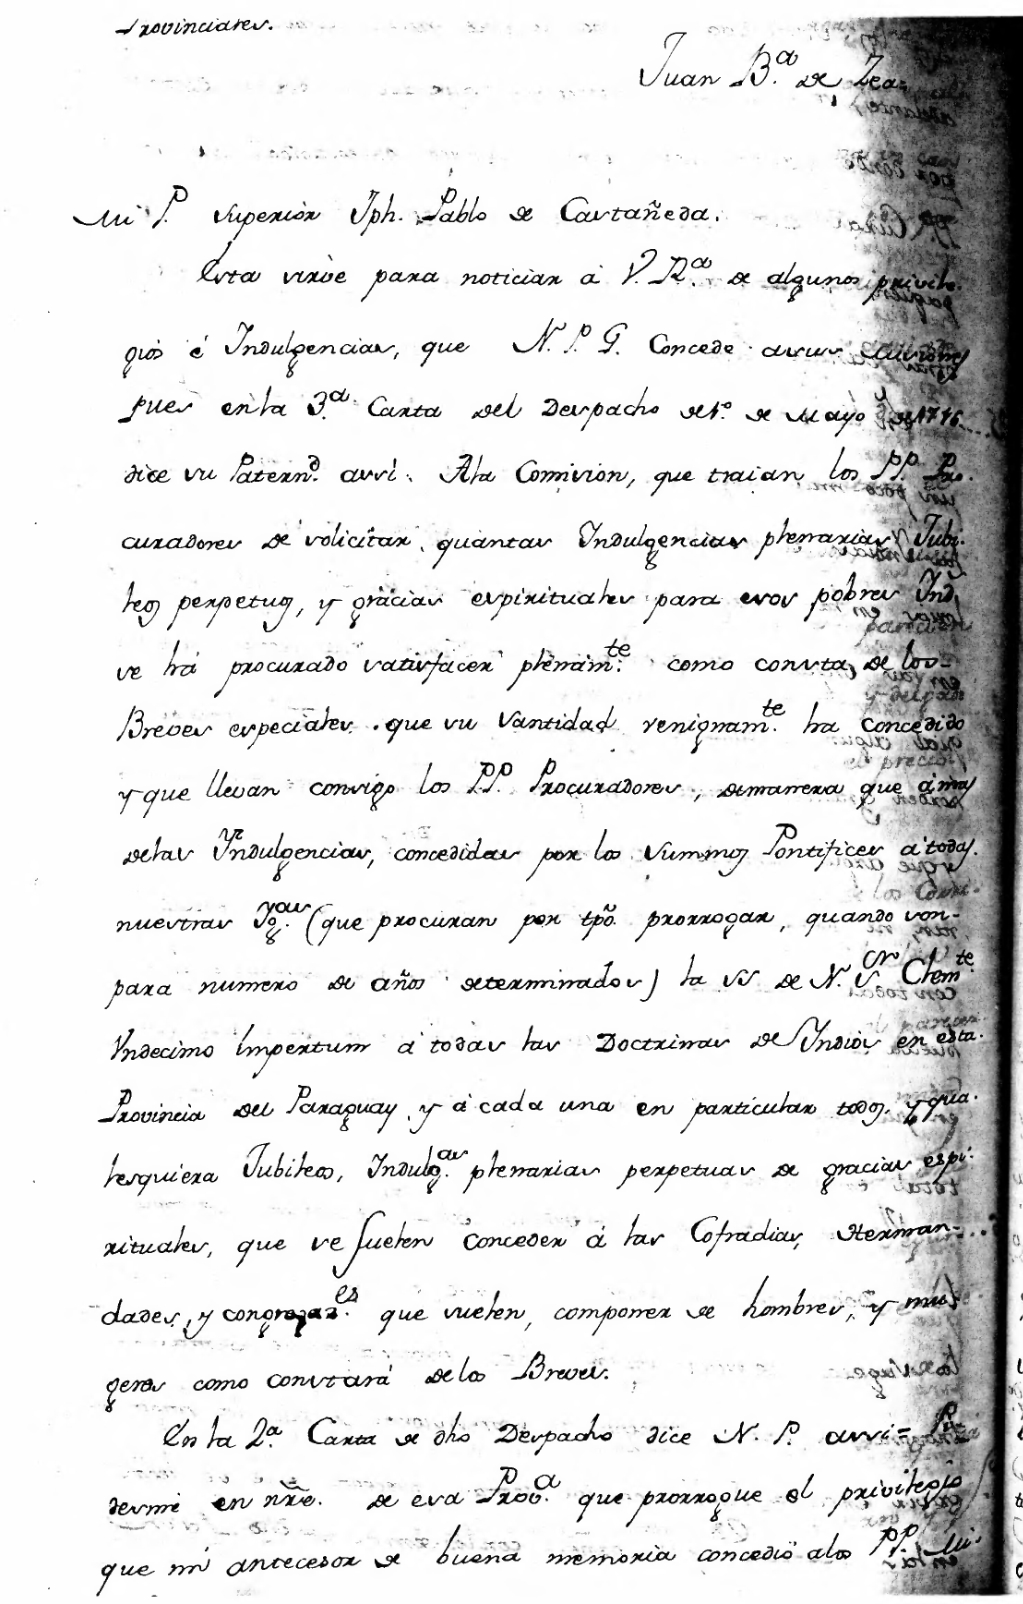 Provinciales.
Juan B.ª de Zea.
Mi P. Superior Jph. Pablo de Castañeda.
Esta sirve para noticiar á V. R.ª de algunos privile-
gios é Indulgencias, que N. P. G. Concede asus
pues enla 3.ª Carta del Despacho de 1.º de Mayo
dice su Patern.d assi. Ala Comision, que traian los PP. Pro-
curadores de solicitar quantas Indulgencias plenarias y Jubi-
leos perpetuos, y gracias espirituales para esos pobres Ind.
se há procurado satisfacer plenam.te como consta de los
Breves especiales que su Santidad benignam.te ha concedido
y que llevan consigo los P.P. Procuradores, demanera que á mas
delas Indulgencias, concedidas por los Summos Pontifices á todas
nuestras (que procuran por tpõ. prorrogar, quando son
para numero de años determinados) la SS. de N. S.or Clem.te
Undecimo Impertum á todas las Doctrinas de Yndios en esta
Provincia del Paraguay y á cada una en particular todos y qua-
lesquiera Jubileos, Indulg.as plenarias perpetuas de gracias espi-
rituales, que se suelen conceder á las Cofradias, Herman-
dades, y congregaz.es que suelen componer de hombres, y mu-
geres como constará delos Breves.
En la 2.ª Carta de dho Despacho dice N. P. assi = Pi-
desme en nr̃e. de esa Prov.ª que prorrogue el privilegio
que mi antecesor de buena memoria concedio alos PP. Mi-